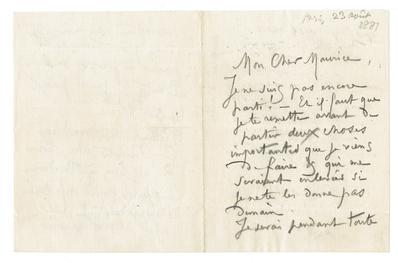 Paris, 23 août
1881
Mon Cher Maurice,
Je ne suis pas encore
parti! — Et il faut que
je te remette avant de
partir deux choses
importantes que je viens
de faire & qui me
seraient enlevées si
je ne te les donne pas
demain.
Je serai pendant toute